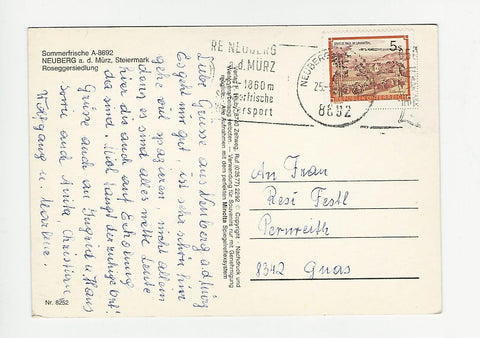 Sommerfrische A-8692
NEUBERG a. d. Mürz, Steiermark
Roseggersiedlung
RE NEUBERG
a.d. MÜRZ
-1860m
merfrische
ersport
NEUBERG
25.
8692
5s
Liebe Grüsse aus Neuberg ad Mürz
Es geht mir gut, ist sehr schön hier
gehe viel spazieren nicht allein
dann es sind alles nette Leute
hier die auch auf Erholung
da sind. Mir langt der ruhige Ort!
Grüsse auch an Ingrid u. Hans
sowie auch Anita, Christian
Wolfgang u.
An Frau
Resi Festl
Pernreith
8342 Gnas
Nr. 8252